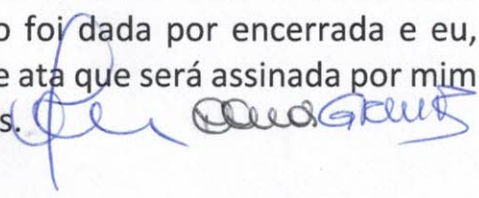 o foi dada por encerrada e eu,
e ata que será assinada por mim
s.